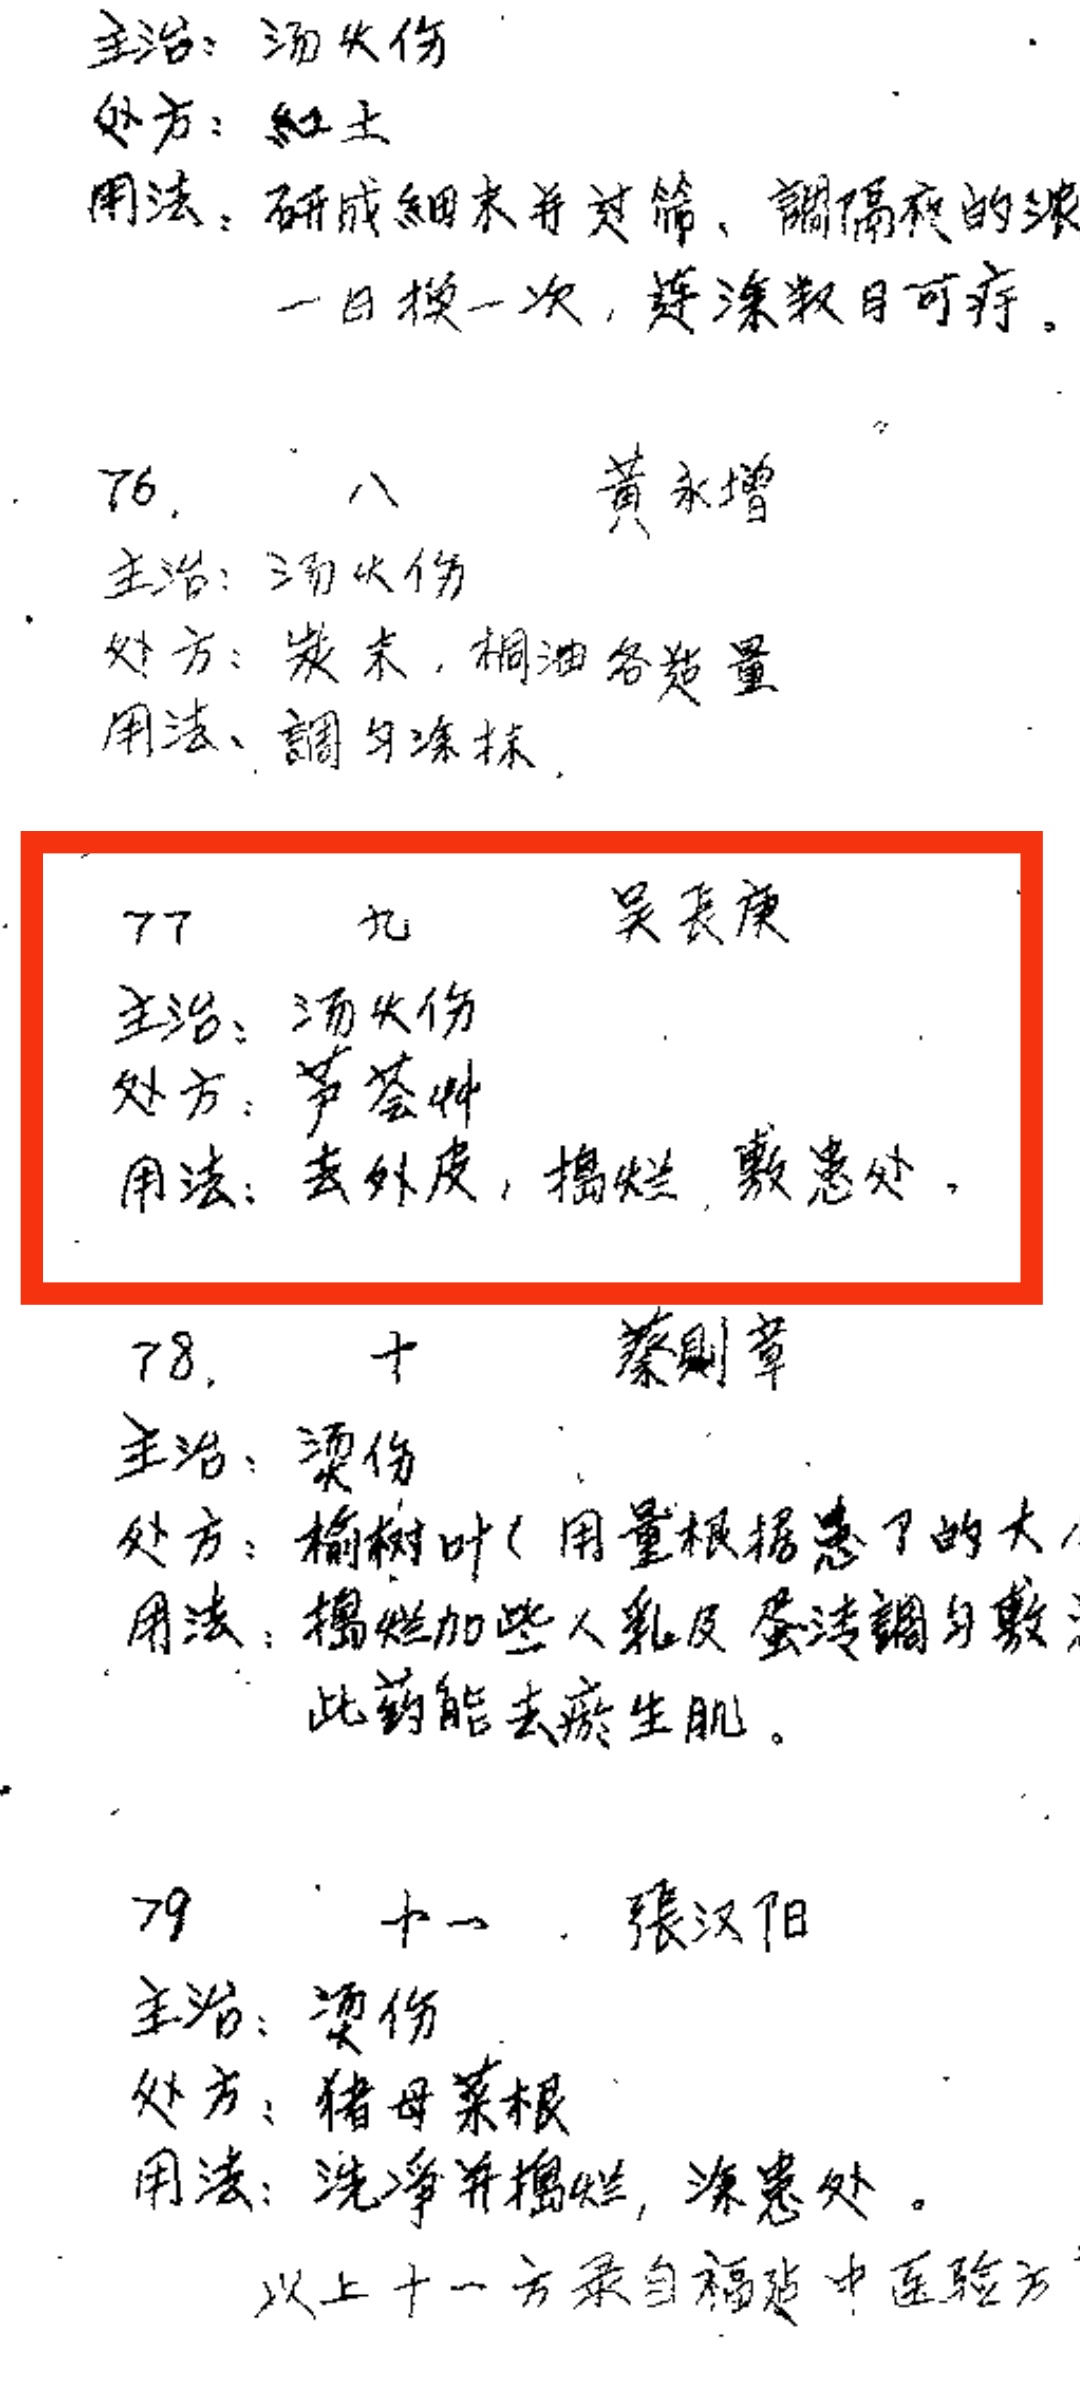 主治：汤火伤
处方：紅土
用法：研成細末并过筛、調隔夜的浓
一日换一次，莲涂数日可疗。
76. 八 黄永增
主治：汤火伤
处方：炭末，桐油各适量
用法、調匀涂抹.
77 九 吴長庚
主治：汤火伤
处方：芦荟艸
用法：去外皮，搗烂，敷患处。
78. 十 蔡則章
主治：烫伤
处方：榆树叶（用量根据患了的大
用法：搗烂加些人乳及蛋清調匀敷
此药能去瘀生肌。
79 十一 張汉阳
主治：烫伤
处方：猪母菜根
用法：洗凈并搗烂，涂患处。
以上十一方录自福建中医验方